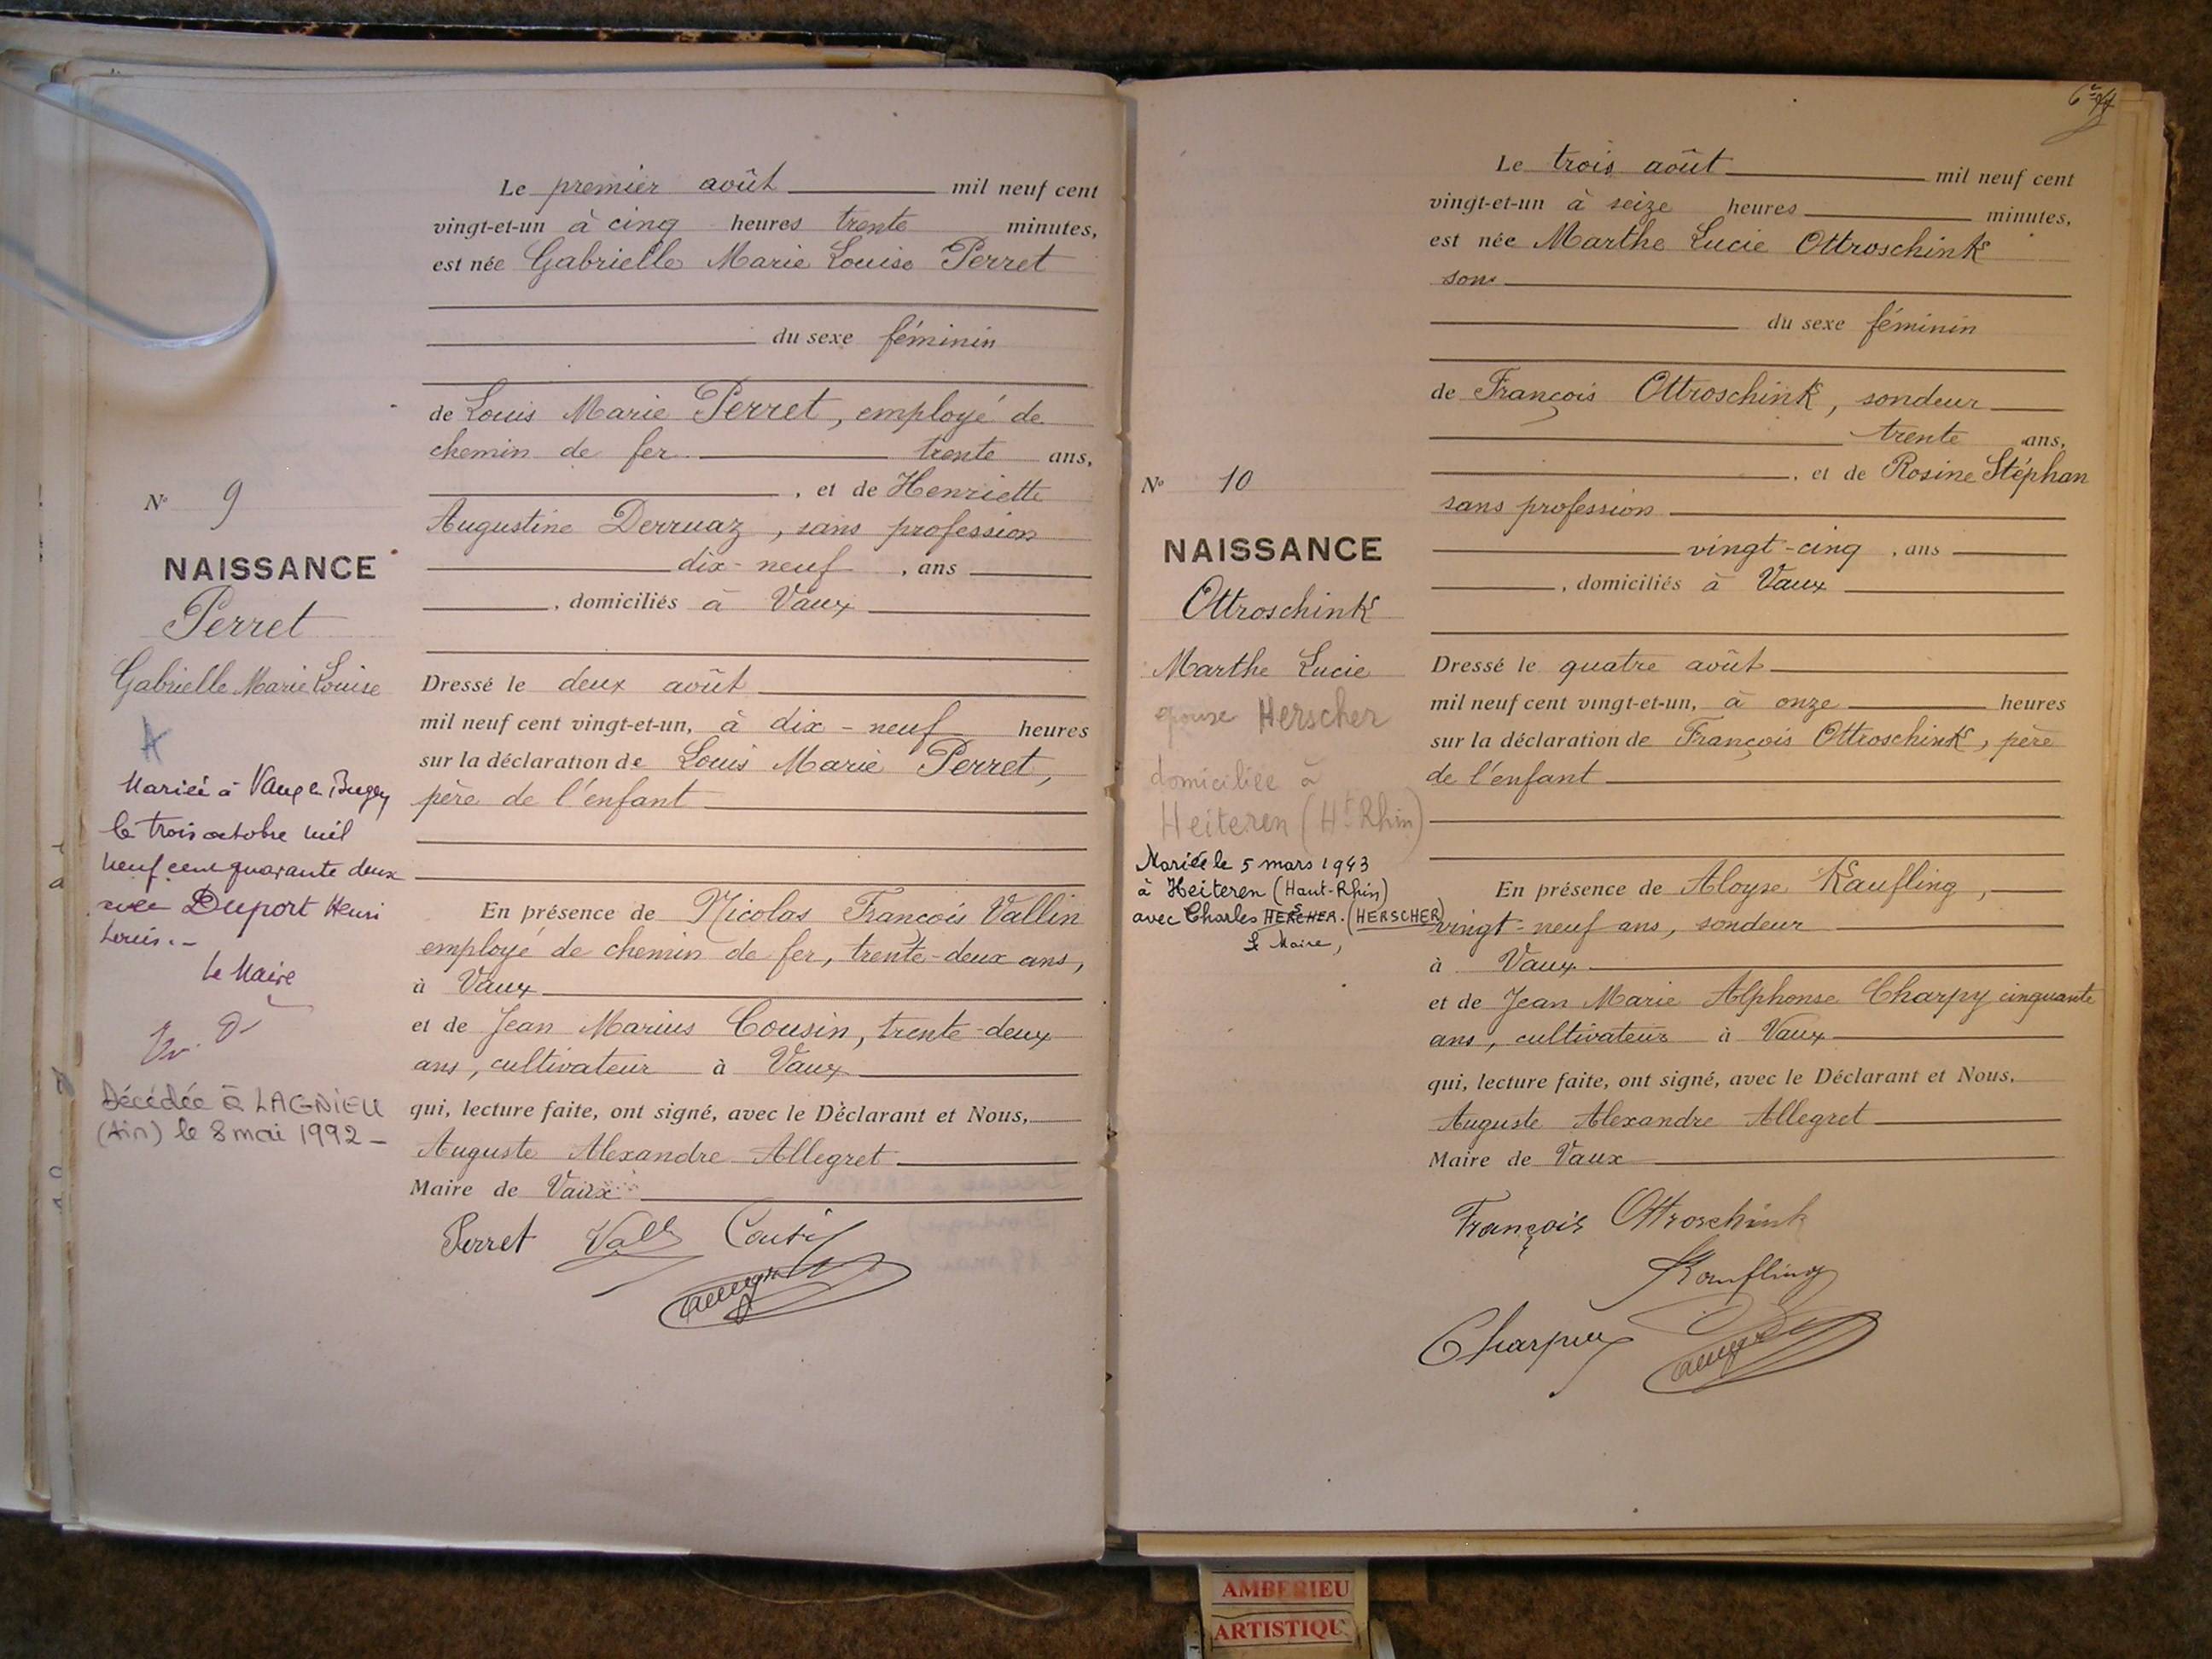 Le premier août mil neuf cent
vingt-et-un à cinq heures trente minutes,
est née Gabrielle Marie Louise Perret
du sexe féminin
de Louis Marie Perret, employé de
chemin de fer trente ans,
, et de Henriette
Augustine Derruaz, sans profession
dix-neuf, ans
, domiciliés à Vaux
Dressé le deux août
mil neuf cent vingt-et-un, à dix-neuf heures
sur la déclaration de Louis Marie Perret,
père de l'enfant
En présence de Nicolas François Vallin
employé de chemin de fer, trente-deux ans,
à Vaux
et de Jean Marius Cousin, trente-deux
ans, cultivateur à Vaux
qui, lecture faite, ont signé, avec le Déclarant et Nous,
Auguste Alexandre Allegret
Maire de Vaux
Perret
N° 9
NAISSANCE
Perret
Gabrielle Marie Louise
A
Mariée à Vaux en Bugey
le trois octobre mil
neuf cent quarante deux
avec Duport Henri
Louis.-
Le Maire
Décédée à LAGNIEU
(Ain) le 8 mai 1992-
Le trois août mil neuf cent
vingt-et-un à seize heures minutes,
est née Marthe Lucie Ottroschink
son
du sexe féminin
de François Ottroschink, sondeur
trente ans,
, et de Rosine Stéphan
sans profession
vingt-cinq, ans
, domiciliés à Vaux
Dressé le quatre août
mil neuf cent vingt-et-un, à onze heures
sur la déclaration de François Ottroschink, père
de l'enfant
En présence de Aloyse Kaufling,
vingt-neuf ans, sondeur
à Vaux
et de Jean Marie Alphonse Charpy cinquante
ans, cultivateur à Vaux
qui, lecture faite, ont signé, avec le Déclarant et Nous,
Auguste Alexandre Allegret
Maire de Vaux
François Ottroschink
Kaufling
N° 10
NAISSANCE
Ottroschink
Marthe Lucie
épouse Herscher
domiciliée à
Heiteren (Ht Rhin)
Mariée le 5 mars 1943
à Heiteren (Haut-Rhin)
avec Charles HERSCHER. (HERSCHER)
Le Maire,
AMBERIEU
ARTISTIQU